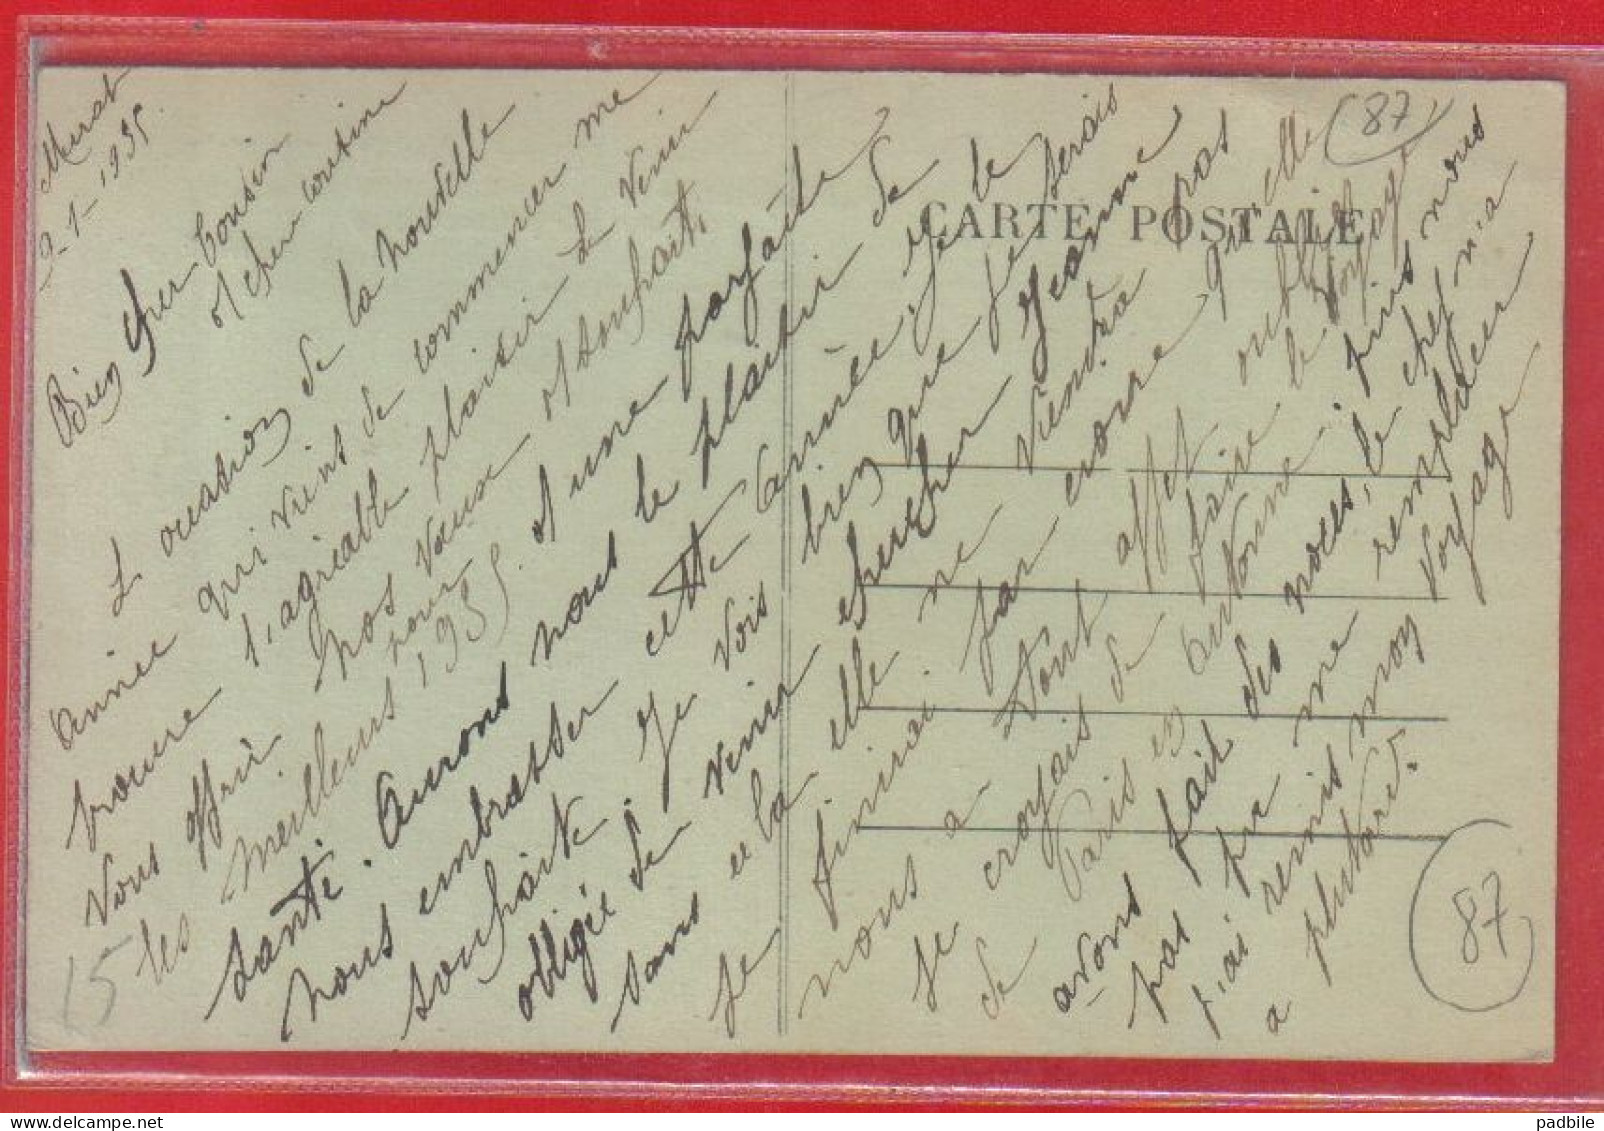 Murat
9-1-1935.
Bien cher Cousin
et chere cousine
L occasion de la nouvelle
Année qui viens de commencer me
trouve l'agréable plaisir de venir
vous offrir nos vœux et souhaits
les meilleurs pour 1935. et une parfaite
santé. Aurons nous le plaisir de
nous embrasser cette Année. je le
souhaite. Je vois bien que je serais
obligée de venir chercher Jeanne
sans cela elle ne viendra pas
je finirai par croire qu'elle
nous a tout affet oublié
je croyais de faire le voyage
de Paris en Automne puis nous
avons fait des noces, le chef n'a
pas pu me remplacer
j'ai remis mon voyage
a plutard.
CARTE POSTALE
(87)
87
15
padbile